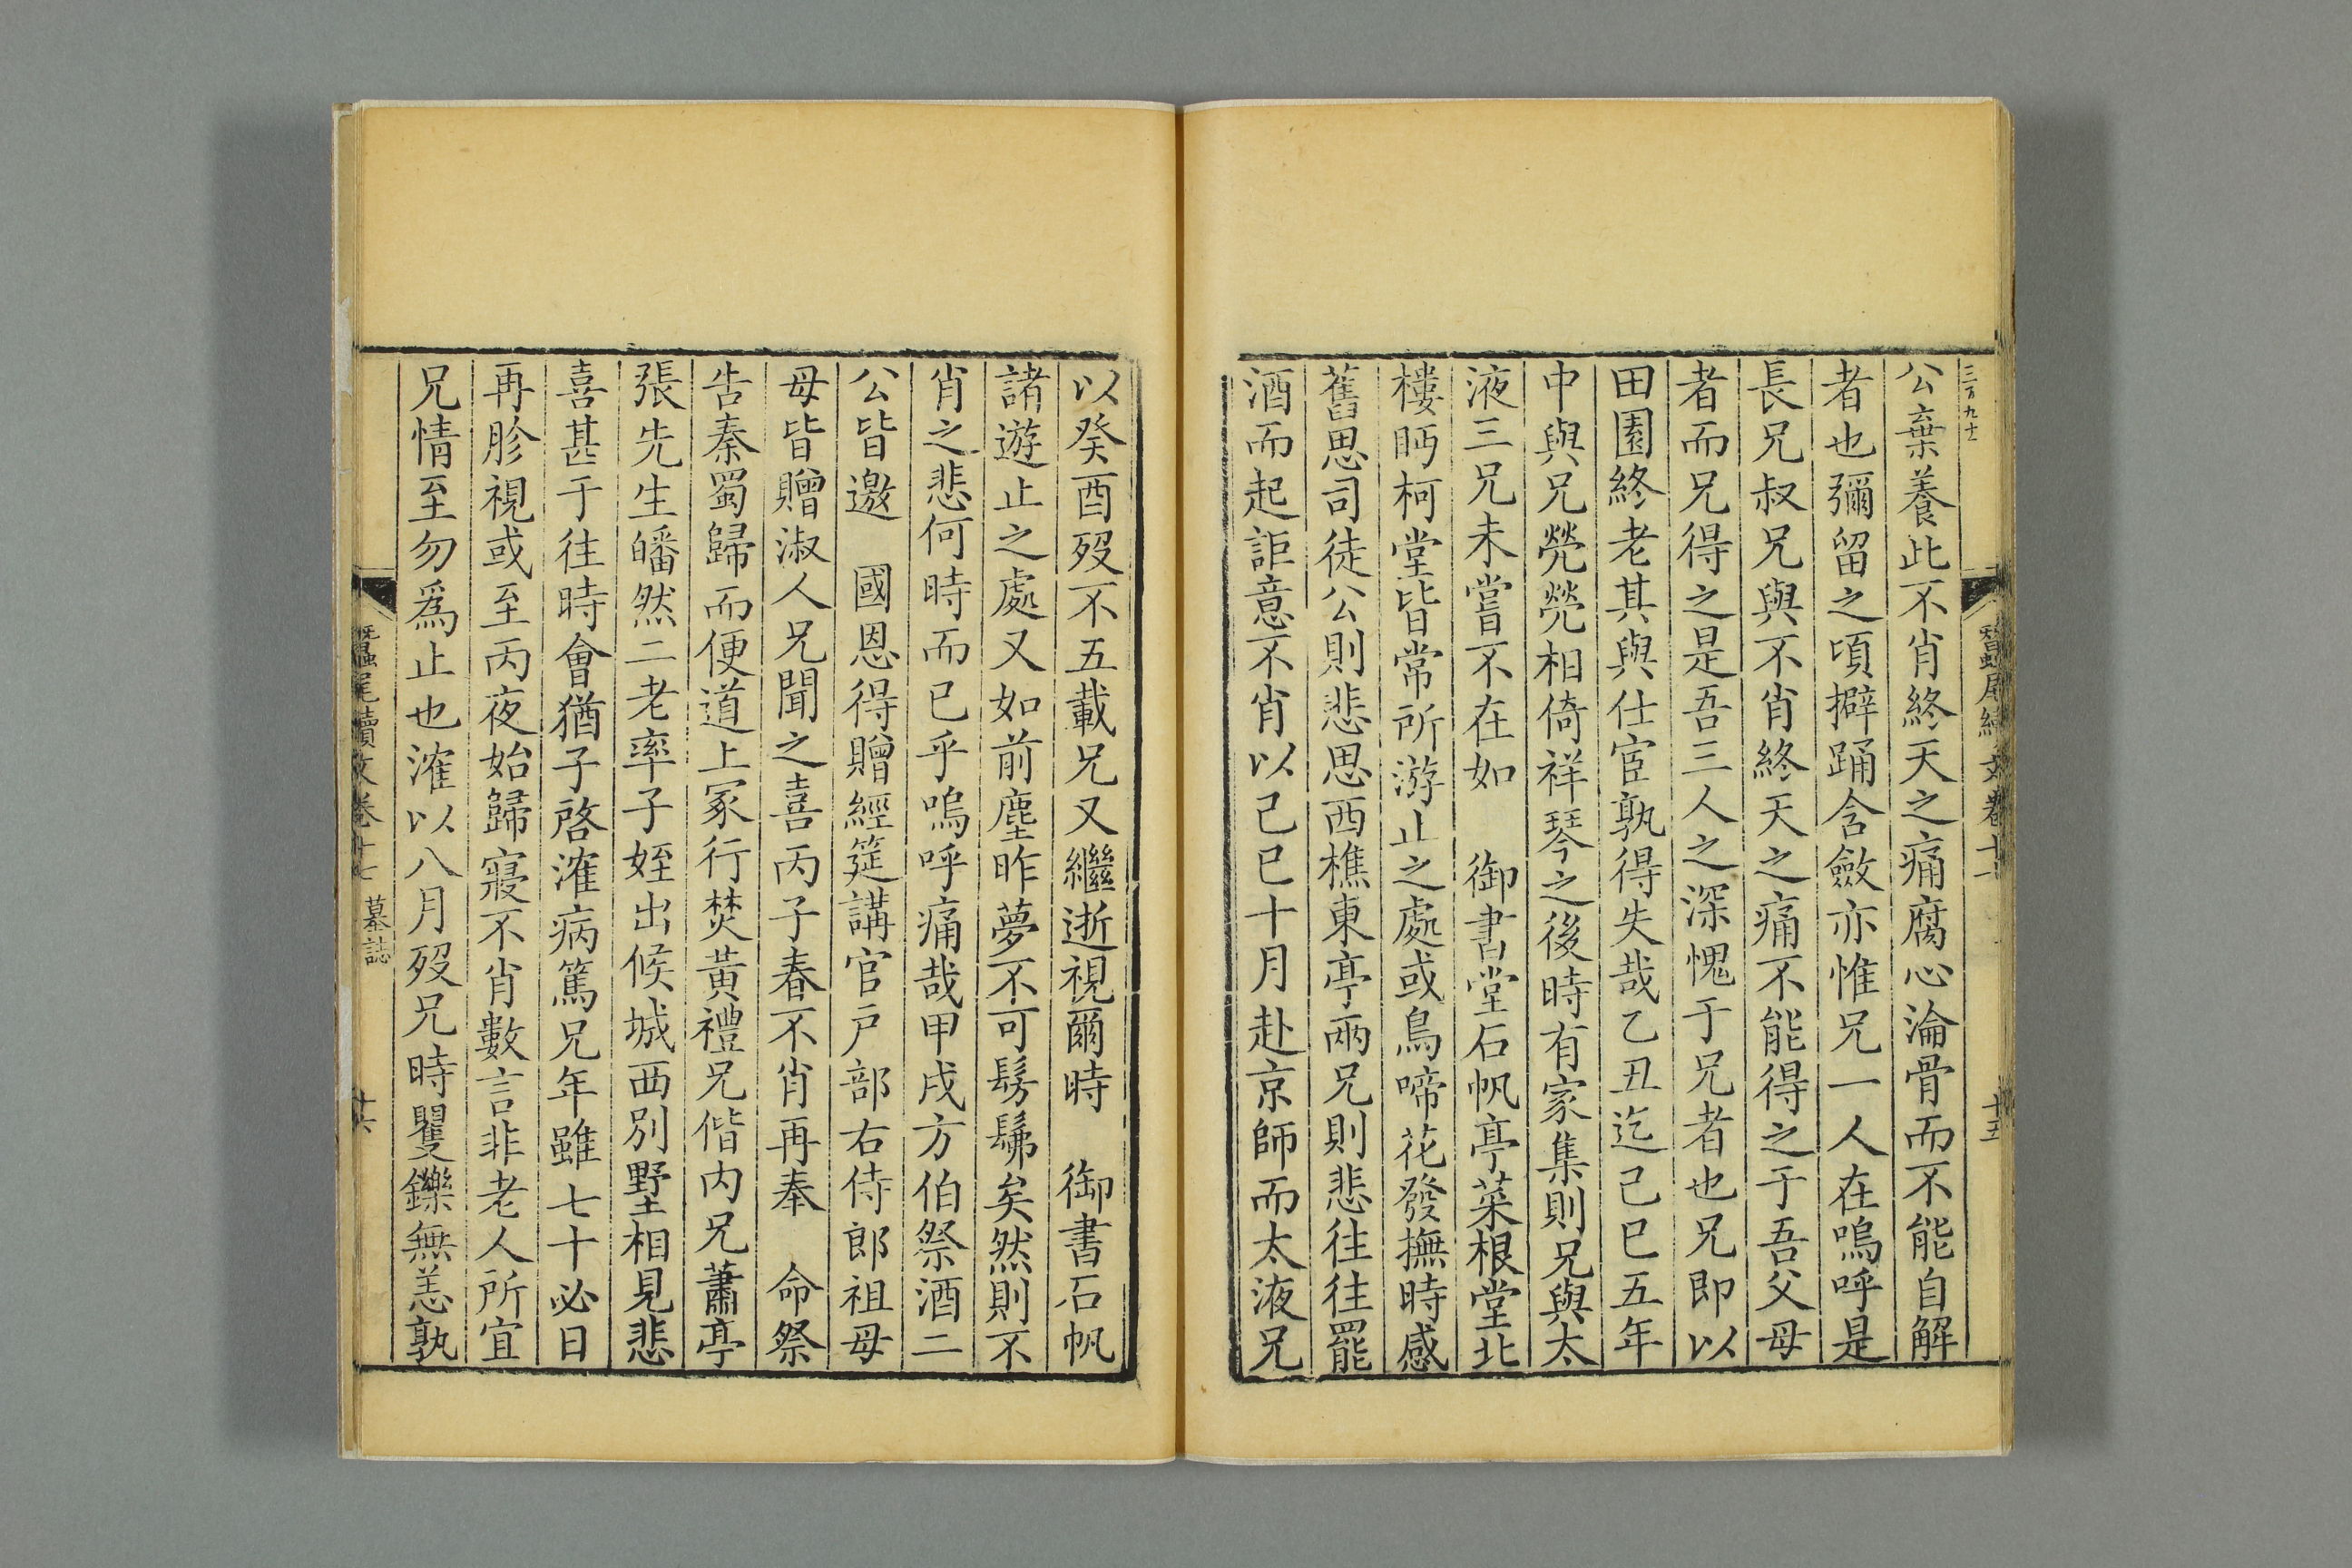 公棄養此不肖終天之痛腐心淪骨而不能自解
者也彌留之頃擗踊含斂亦惟兄一人在嗚呼是
長兄叔兄與不肖終天之痛不能得之于吾父母
者而兄得之是吾三人之深愧于兄者也兄即以
田園終老其與仕宦孰得失哉乙丑迄己巳五年
中與兄煢煢相倚祥琴之後時有家集則兄與太
液三兄未嘗不在如 御書堂石帆亭菜根堂北
樓眄柯堂皆常所游止之處或鳥啼花發撫時感
舊思司徒公則悲思西樵東亭兩兄則悲往往罷
酒而起詎意不肖以己巳十月赴京師而太液兄
以癸酉歿不五載兄又繼逝視爾時 御書石帆
諸遊止之處又如前塵昨夢不可髣髴矣然則不
肖之悲何時而已乎嗚呼痛哉甲戌方伯祭酒二
公皆邀 國恩得贈經筵講官戶部右侍郎祖母
母皆贈淑人兄聞之喜丙子春不肖再奉 命祭
告秦蜀歸而便道上冢行焚黃禮兄偕內兄蕭亭
張先生皤然二老率子姪出候城西別墅相見悲
喜甚于往時會猶子啓漼病篤兄年雖七十必日
再胗視或至丙夜始歸寢不肖數言非老人所宜
兄情至勿爲止也漼以八月歿兄時矍鑠無恙孰
蠶尾續文卷十七 墓誌 十六